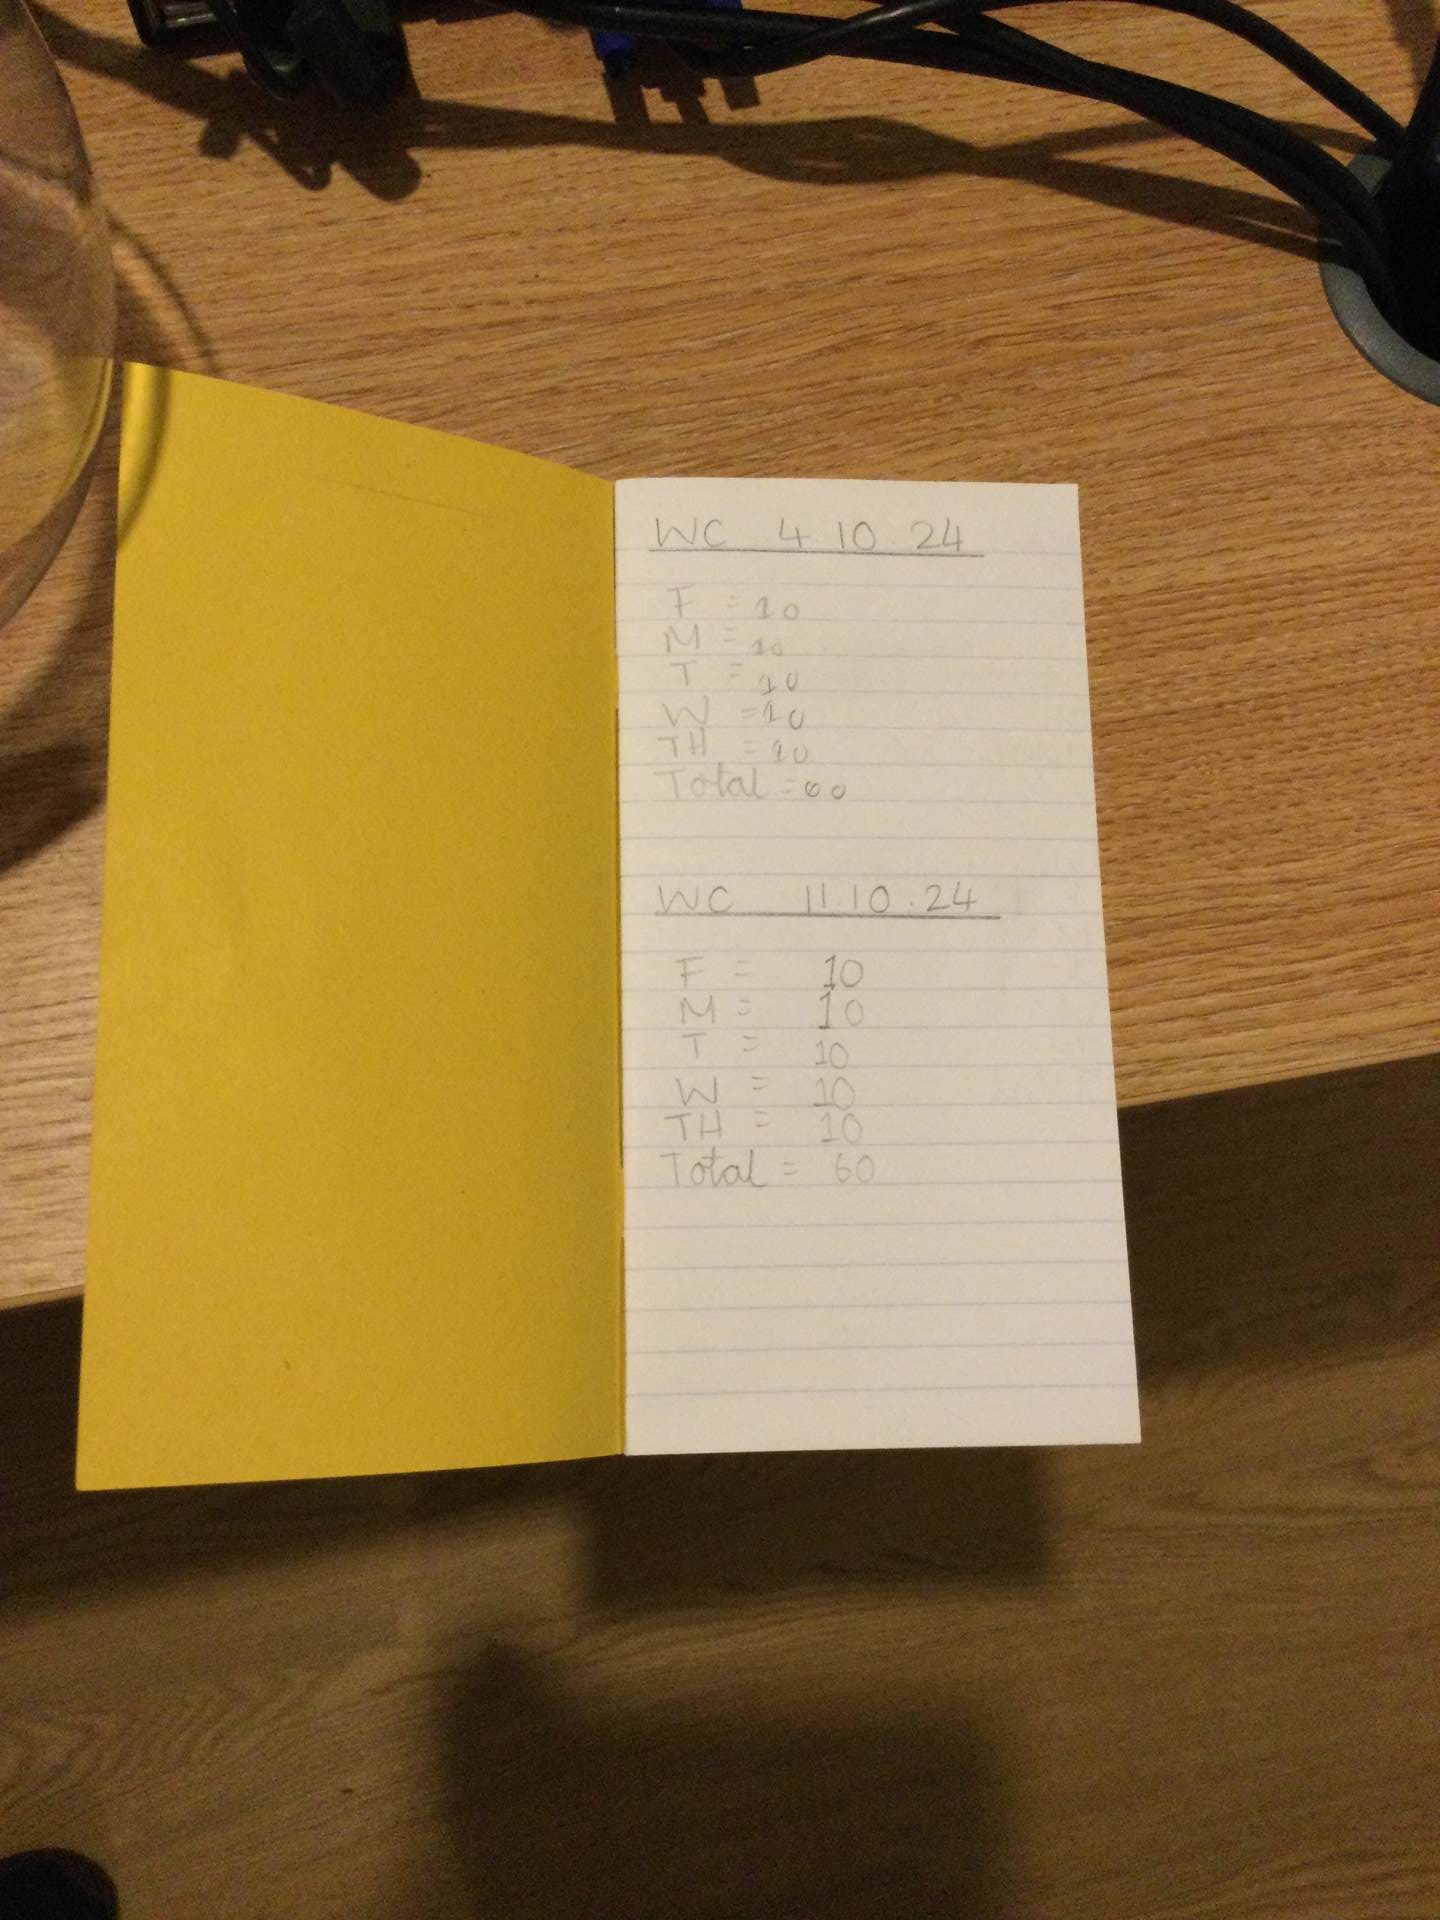 WC 4.10.24
F = 10
M = 10
T = 10
W = 10
TH = 10
Total = 60
WC 11.10.24
F = 10
M = 10
T = 10
W = 10
TH = 10
Total = 60